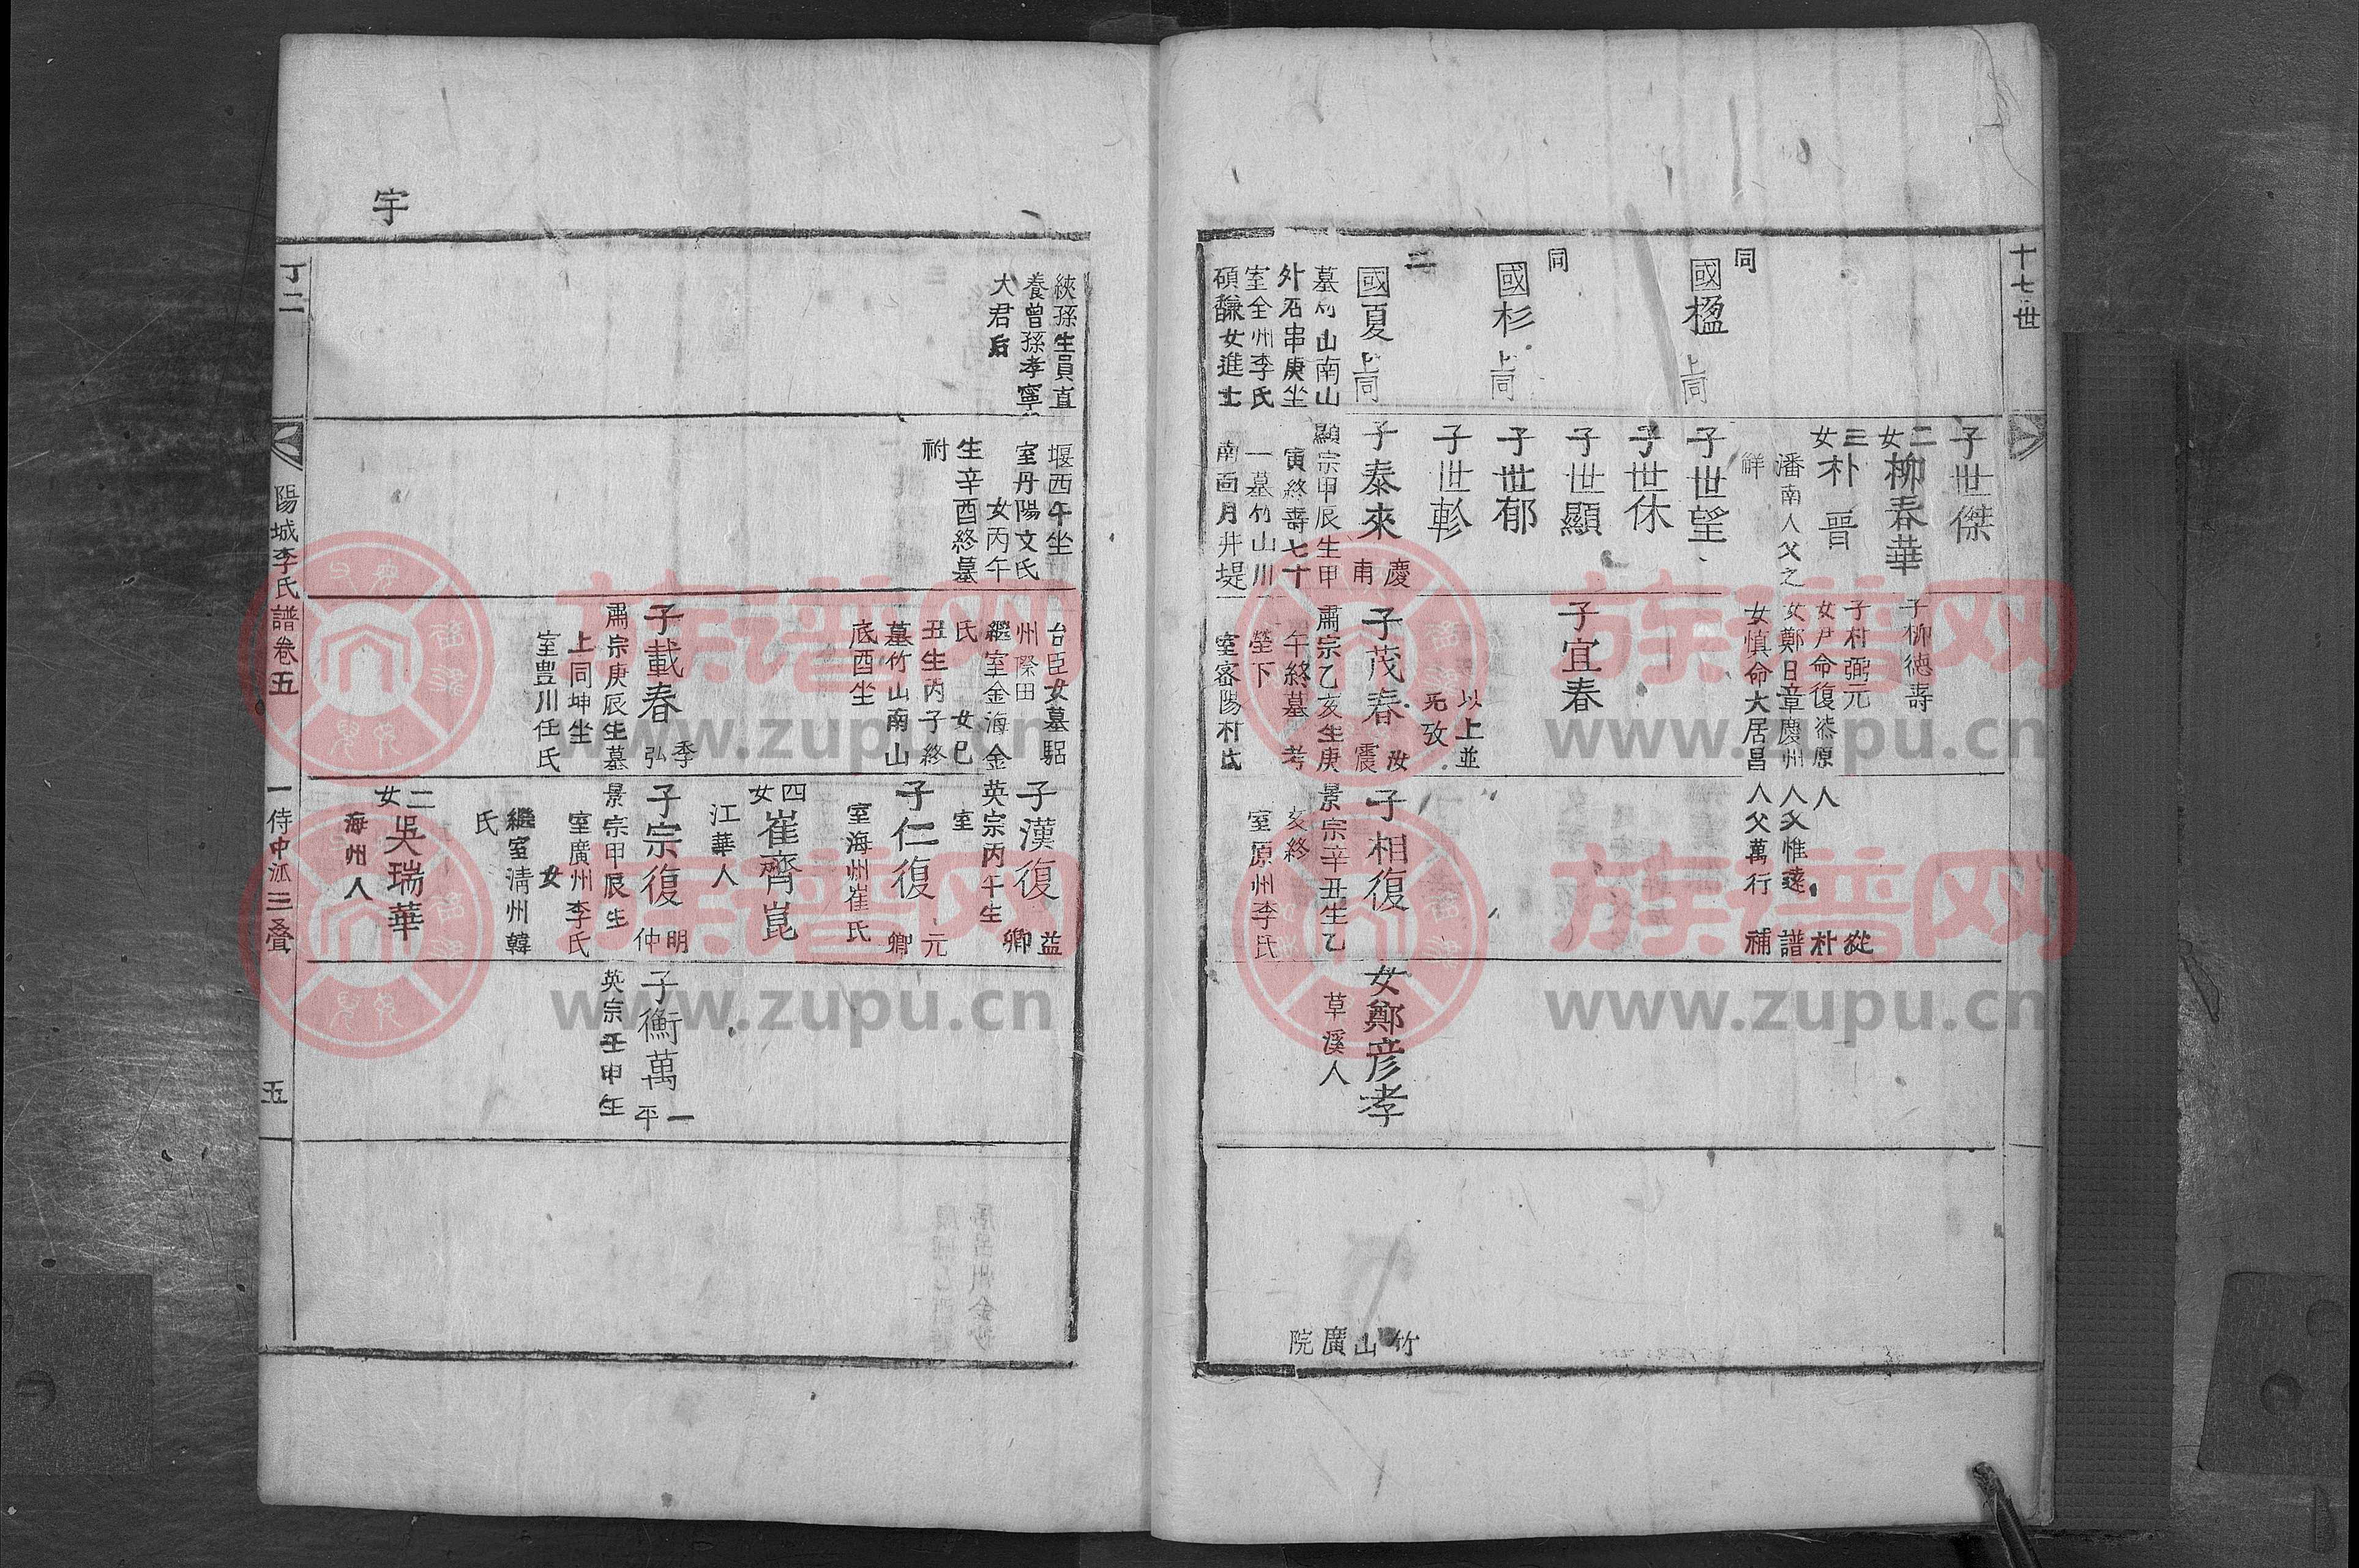 十七世
同
國楹
上同
同
國杉
上同
二
國夏
上同
墓竹山南山
外石串庚坐
室全州李氏
碩馦女進士
子世傑
二女柳春華
三女朴晉
潘南人父之
鮮
子世望
子世休
子世顯
子世郁
子世軫
子泰來
慶甫
顯宗甲辰生甲
寅終壽七十
一墓竹山川
南面月井堤
子柳德壽
子朴弼元
女尹命復柒原
女鄭日章慶州
女慎命大居昌
子宜春
以上並
旡攷
子茂春
汝震
肅宗乙亥生庚
午終墓考
塋下
室密陽朴氏
從
人朴
人父惟達譜
人父萬行補
子相復
景宗辛丑生乙
亥終
室原州李氏
女鄭彦孝
草溪人
竹山廣院
宇
丁二
陽城李氏譜卷五
一侍中派三叠
五
綊孫生員直
養曾孫孝寧
大君后
堰酉午坐
室丹陽文氏
女丙午
生辛酉終墓
祔
台臣女墓駋
州際田
繼室金海金
氏女巳
丑生丙子終
墓竹山南山
底酉坐
子載春
季弘
肅宗庚辰生墓
上同坤坐
室豊川任氏
子漢復
益卿
英宗丙午生
室
子仁復
元卿
室海州崔氏
四女崔齊崑
江華人
子宗復
明仲
景宗甲辰生
室廣州李氏
女
繼室淸州韓
氏
二女吳瑞華
海州人
子衡萬
一平
英宗壬申生
族谱网
www.zupu.cn
族谱网
www.zupu.cn
族谱网
www.zupu.cn
族谱网
www.zupu.cn